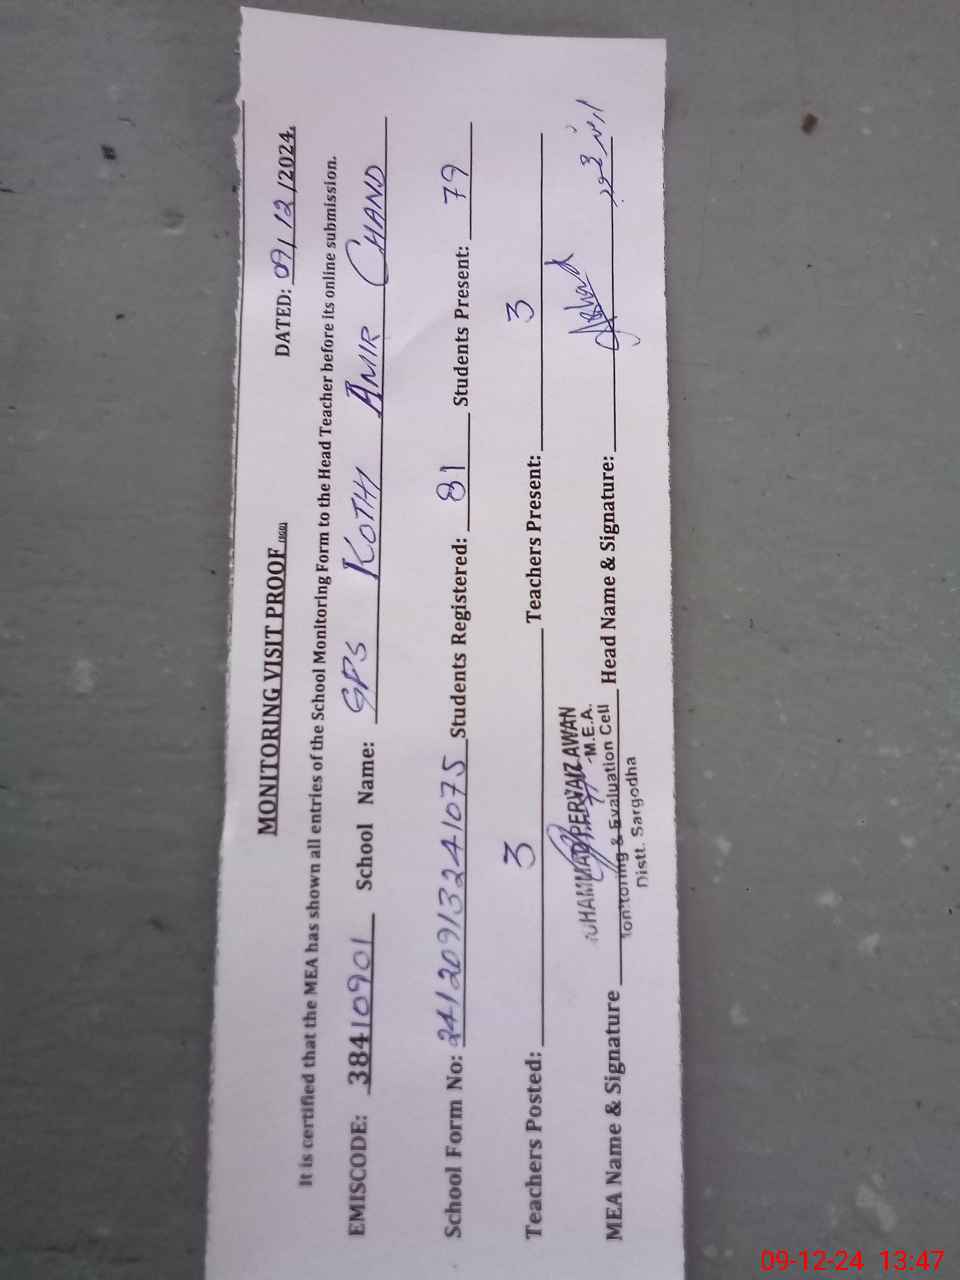 MONITORING VISIT PROOF
DATED: 09/12/2024.
It is certified that the MEA has shown all entries of the School Monitoring Form to the Head Teacher before its online submission.
EMISCODE: 38410901 School Name: GPS KOTHI AMIR CHAND
School Form No: 241209132241075 Students Registered: 81 Students Present: 79
Teachers Posted: 3 Teachers Present: 3
MEA Name & Signature Head Name & Signature:
PERVAIZ AWAN
-M.E.A.
& Evaluation Cell
Distt. Sargodha
09-12-24 13:47